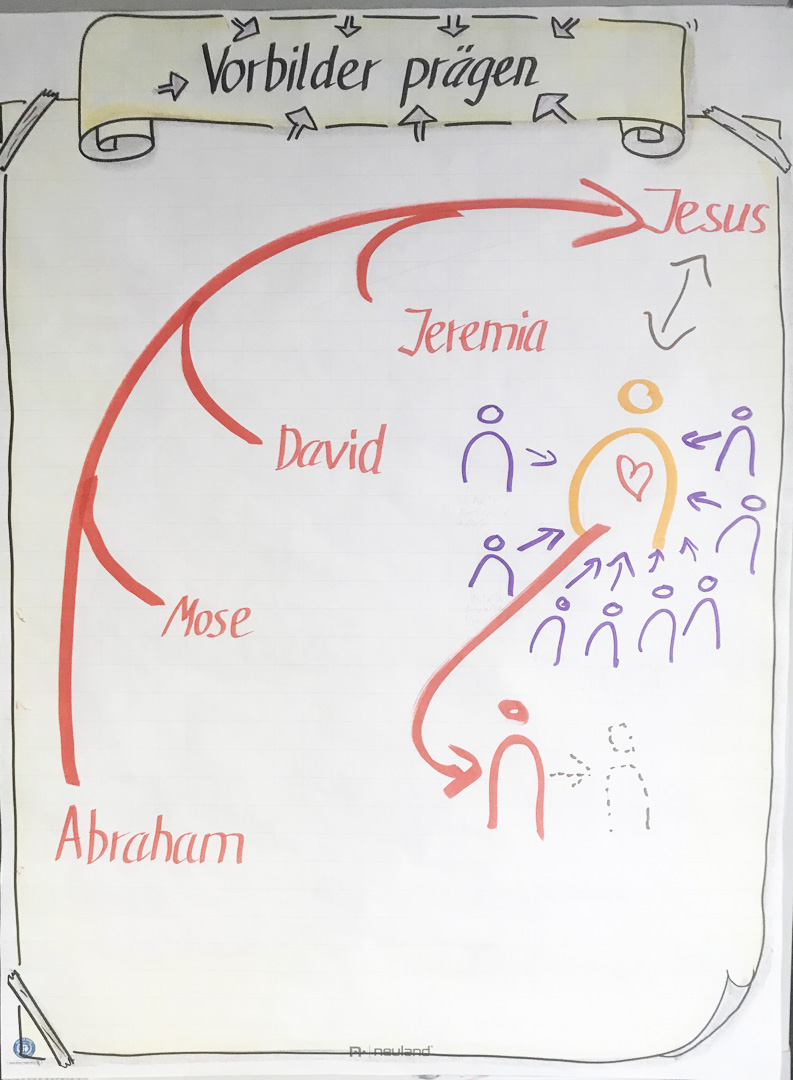 Vorbilder prägen
Jesus
Jeremia
David
Mose
Abraham
neuland